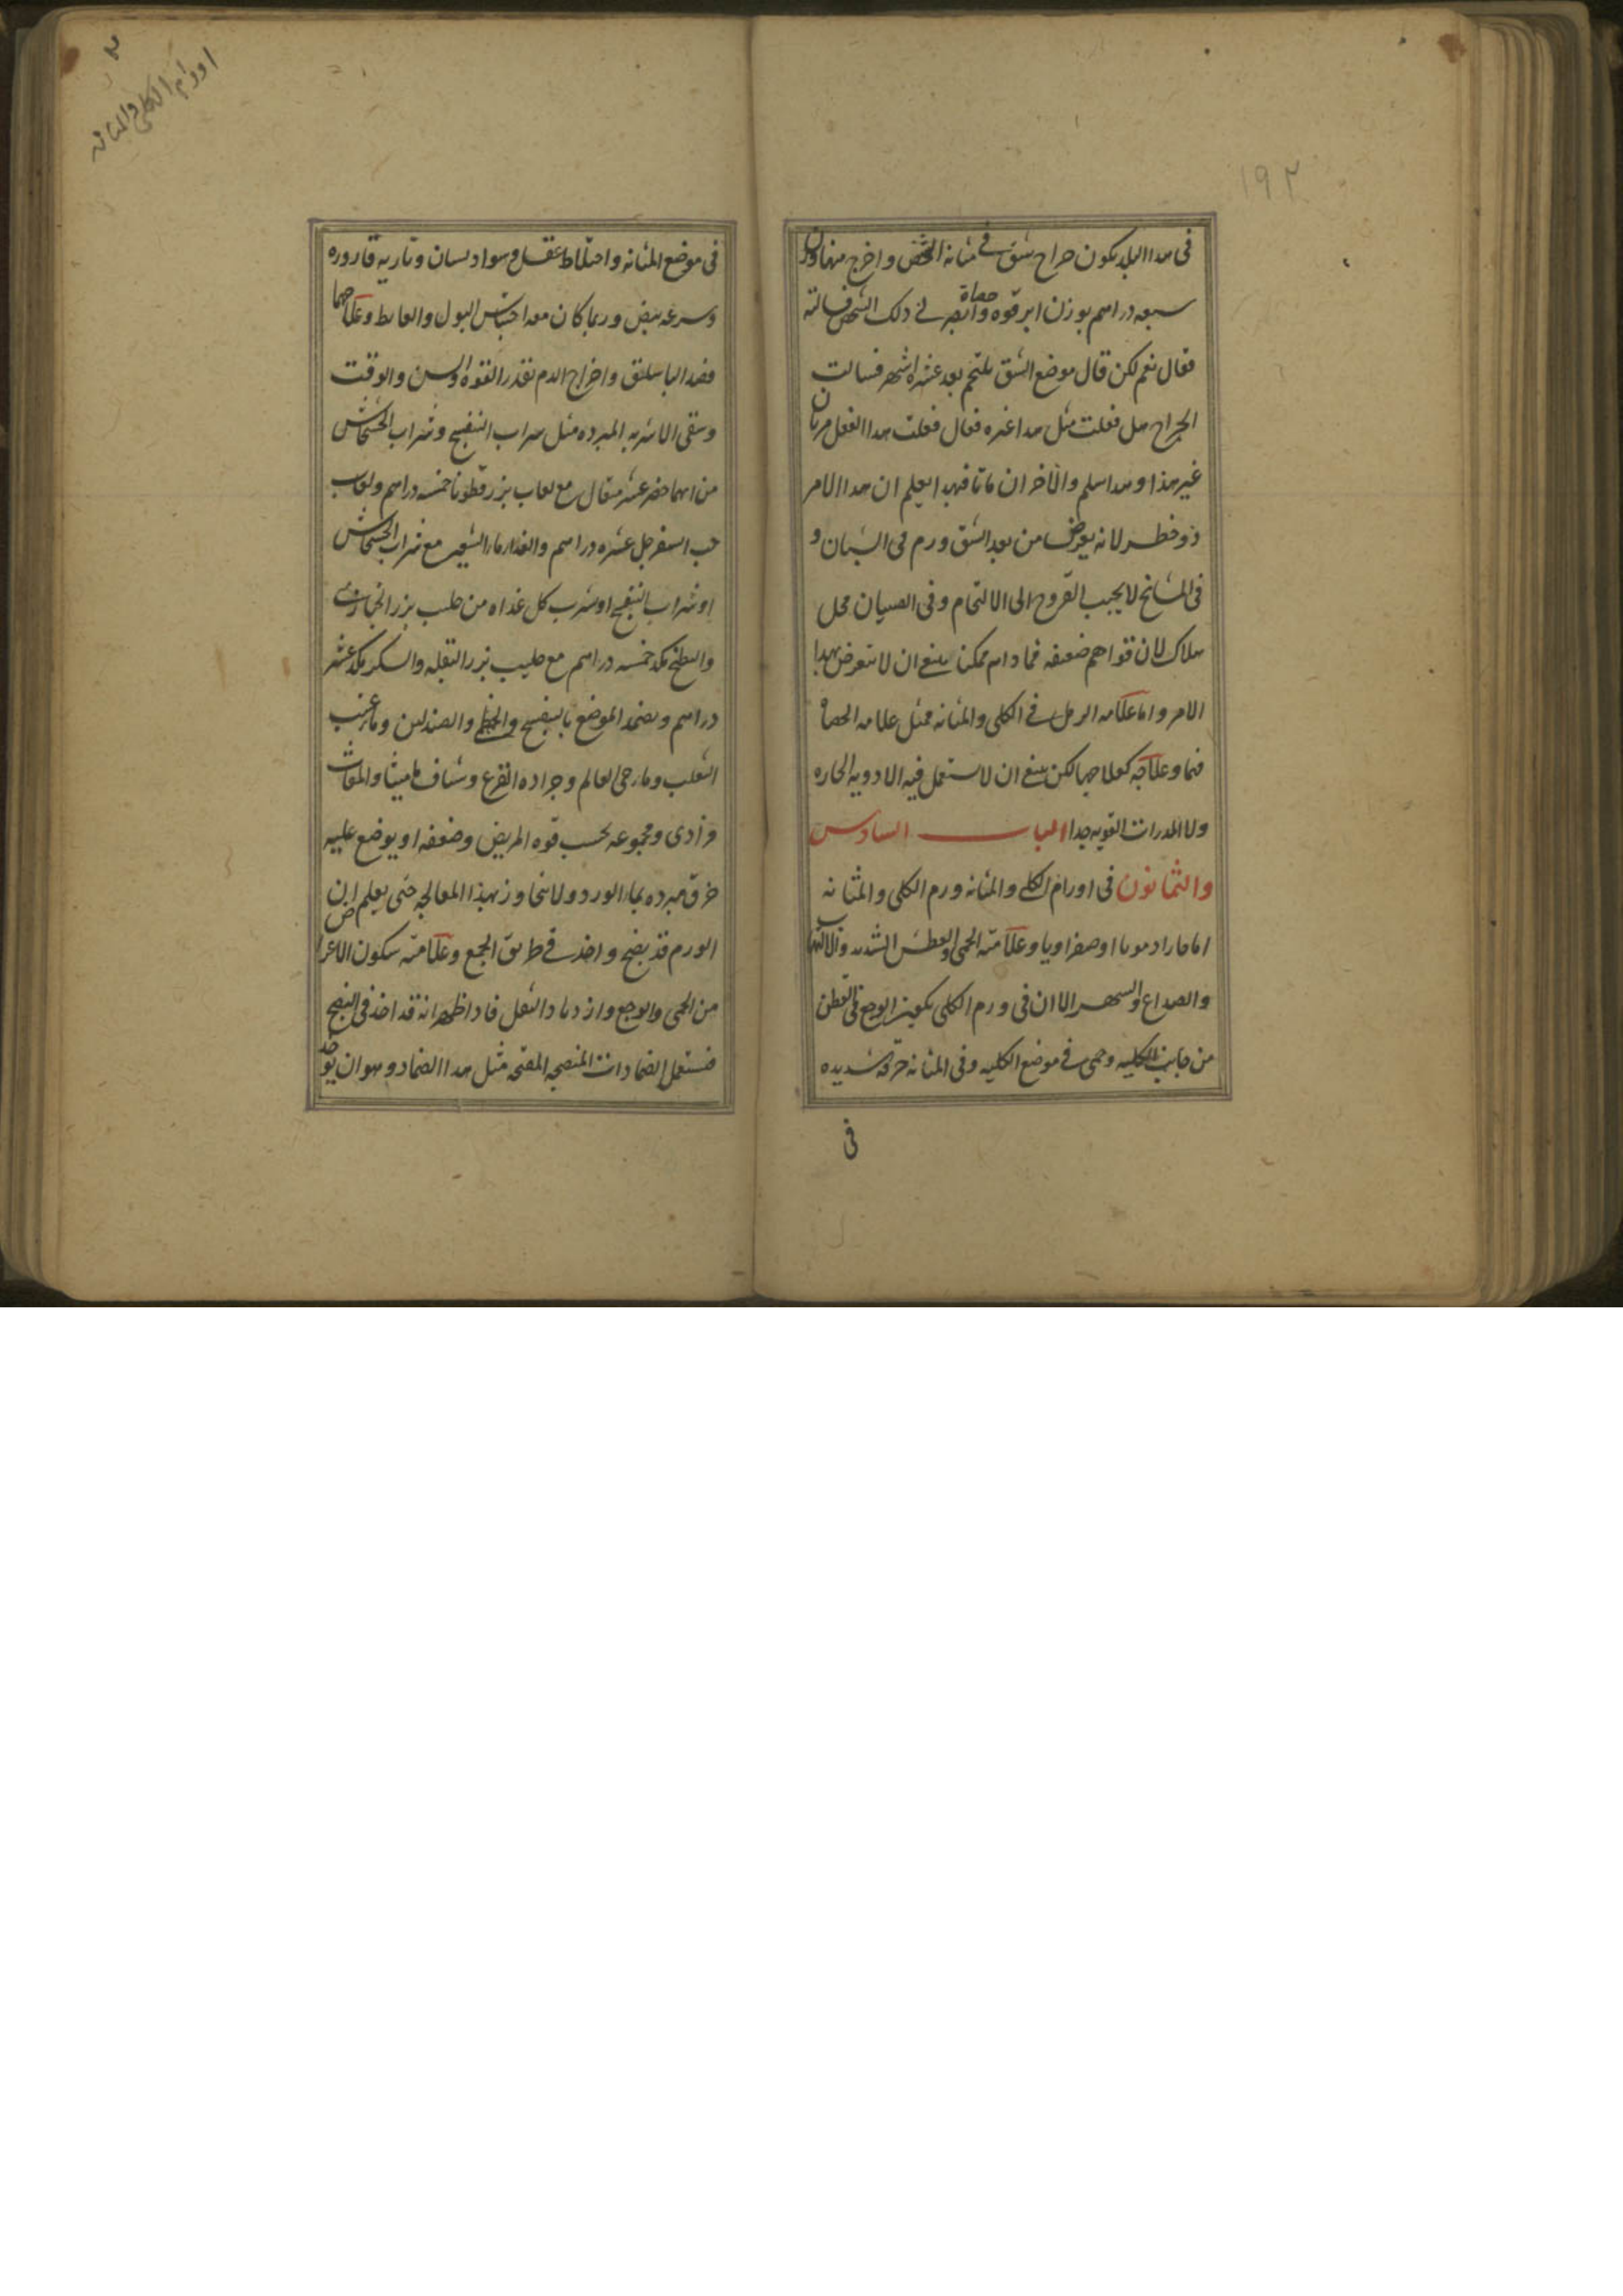 ١٩٢
فى هذا البلد يكون جراح شق فى مثانة الشخص واخرج منها وزن
سبعه دراهم بوزن ابرقوه حصاة وابصر فى ذلك الشخص فسالته
فقال نعم لكن قال موضع الشق يلتحم بعد عشره اشهر فسالت
الجراح هل فعلت مثل هذا غيره فقال فعلت هذا الفعل مرتان
غير هذا وهذا سلم والآخران ماتا فبهذا يعلم ان هذا الامر
ذو خطر لانه يعرض من بعد الشق ورم فى الشبان و
فى المشايخ لا يجيب القروح الى الالتحام وفى الصبيان محل
هلاك لان قواهم ضعيفه فما دام ممكنا ينبغى ان لا يتعرض بهذا
الامر واما علامه الرمل فى الكلى والمثانه فمثل علامه الحصاة
فيها وعلاجه كعلاجها لكن ينبغى ان لا يستعمل فيه الادويه الحاره
ولا المدرات القويه جدا الباب السادس
والثمانون فى اورام الكلى والمثانه ورم الكلى والمثانه
اما حارا دمويا او صفراويا وعلامته الحمى والعطش الشديد والالتهاب
والصداع والسهر الا ان فى ورم الكلى يكون الوجع فى القطن
من جانب الكليه وحمى فى موضع الكليه وفى المثانه حرقه شديده
فى
اورام الكلى والمثانه
فى موضع المثانه واختلاط عقل وسواد لسان وناريه قاروره
وسرعه نبض وربما كان معه احتباس البول والغايط وعلاجهما
فصد الباسليق واخراج الدم بقدر القوه والسن والوقت
وسقى الاشربه المبرده مثل شراب البنفسج وشراب الخشخاش
من ايهما حضر عشر مثقال مع لعاب بزر قطونا خمسه دراهم ولعاب
حب السفرجل عشره دراهم والغذا ماء الشعير مع شراب الخشخاش
او شراب البنفسج او شرب كل غداه من حليب بزر الخيارين
والبطيخ يكد خمسه دراهم مع حليب بزر البقله والسكر يكد عشر
دراهم ويضمد الموضع بالبنفسج والخطمى والصندلين وماء عنب
الثعلب وماء حى العالم وجراده القرع وشياف ماميثا والمغاث
فرادى ومجموعه بحسب قوه المريض وضعفه او يوضع عليه
خرق مبرده بماء الورد ولا يتجاوز بهذا المعالجه حتى يعلم ان
الورم قد نضج واخذ فى طريق الجمع وعلامته سكون الاعراض
من الحمى والوجع وازدياد الثقل فاذا ظهر انه قد اخذ فى النضج
فيستعمل الضمادات المنضجه المفتحه مثل هذا الضماد وهو ان يوخذ